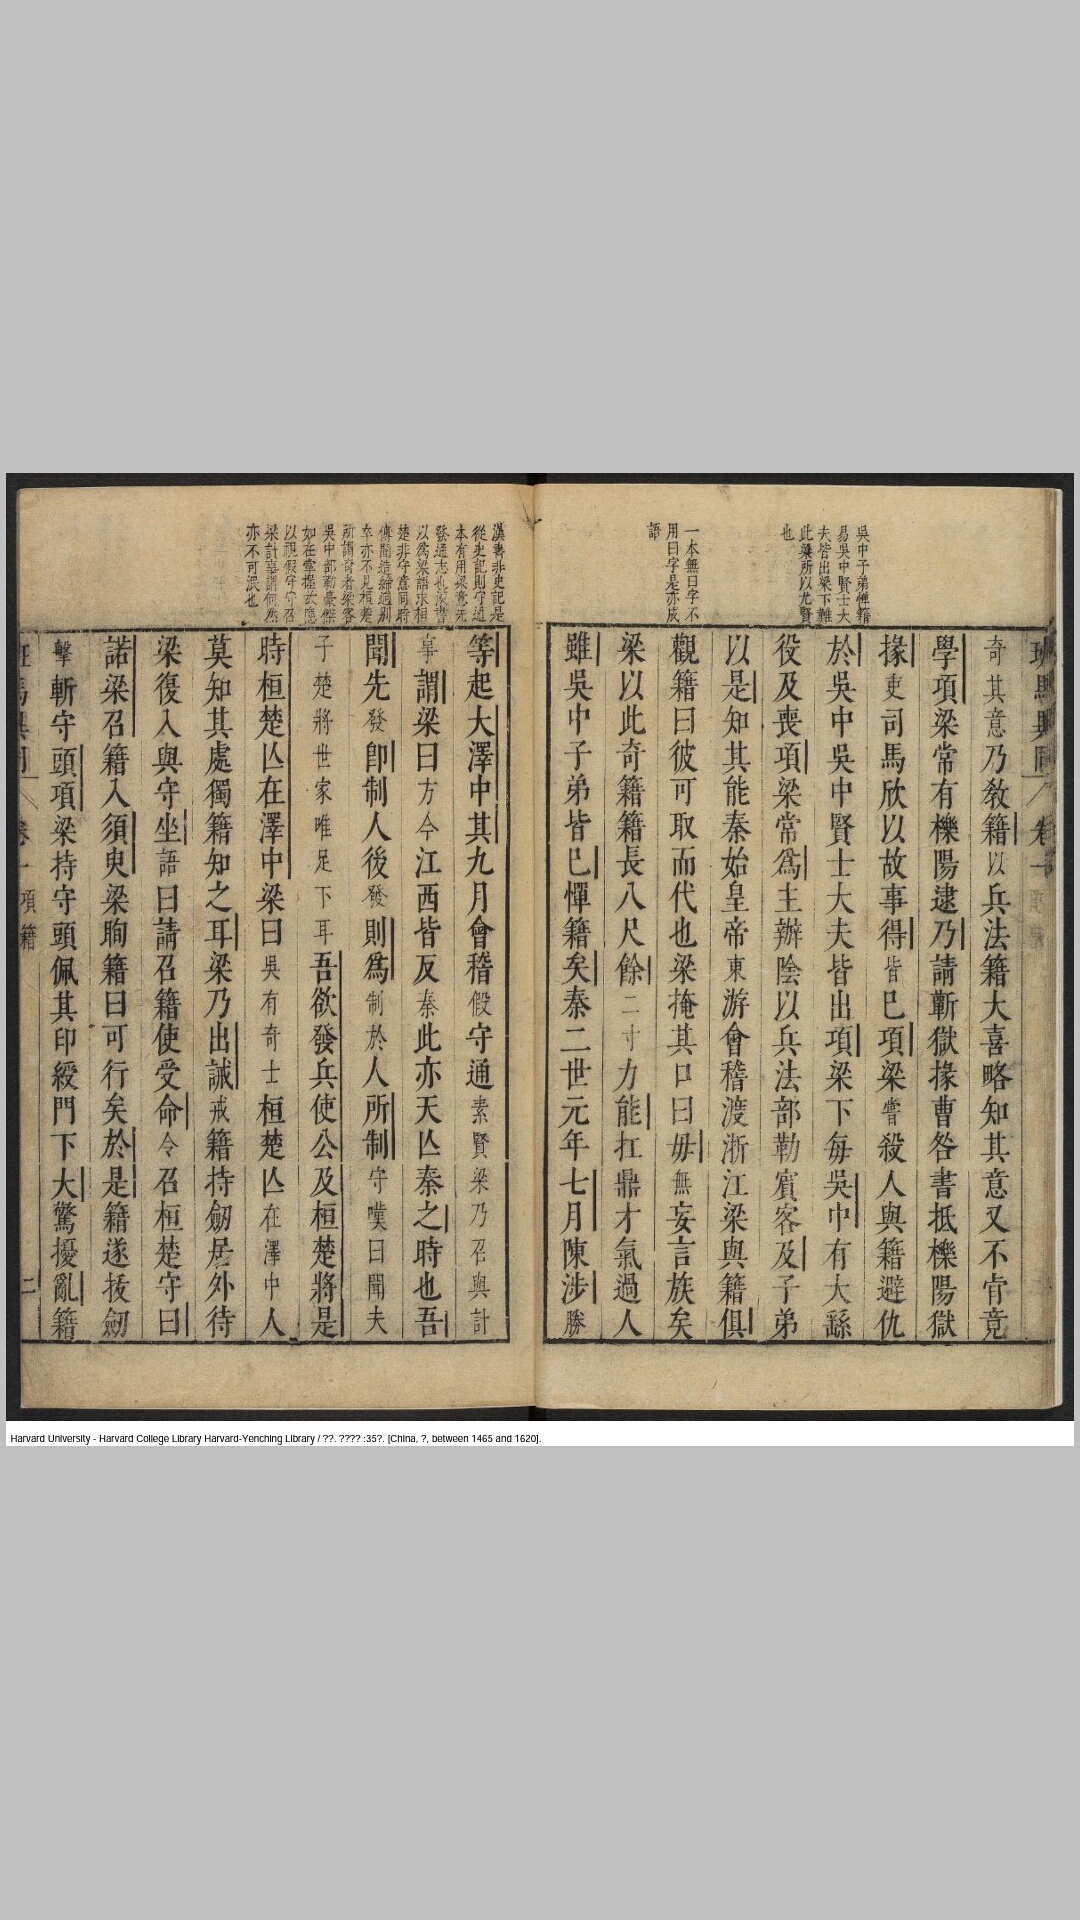 班馬異同 卷一
吳中子弟憚籍
易吳中賢士大
夫皆出梁下難
此梁所以尤賢
也
一本無曰字不
用曰字是亦成
語
奇其意乃敎籍以兵法籍大喜略知其意又不肯竟
學項梁常有櫟陽逮乃請蘄獄掾曹咎書抵櫟陽獄
掾吏司馬欣以故事得皆巳項梁嘗殺人與籍避仇
於吳中吳中賢士大夫皆出項梁下每吳中有大繇
役及喪項梁常爲主辦陰以兵法部勒賓客及子弟
以是知其能秦始皇帝東游會稽渡浙江梁與籍俱
觀籍曰彼可取而代也梁掩其口曰毋無妄言族矣
梁以此奇籍籍長八尺餘二寸力能扛鼎才氣過人
雖吳中子弟皆巳憚籍矣秦二世元年七月陳涉勝
漢書非史記是
從史記則守通
本有用梁意先
發通志也漢書
以爲梁語求桓
楚非守意同時
傳聞造締逈別
卒亦不見桓楚
所謂奇者梁客
吳中部勒豪傑
如在掌握故應
以視假守守召
梁計事謂何然
亦不可泯也
等起大澤中其九月會稽假守通素賢梁乃召與計
事謂梁曰方今江西皆反秦此亦天亾秦之時也吾
聞先發卽制人後發則爲制於人所制守嘆曰聞夫
子楚將世家唯足下耳吾欲發兵使公及桓楚將是
時桓楚亾在澤中梁曰吳有奇士桓楚亾在澤中人
莫知其處獨籍知之耳梁乃出誡戒籍持劒居外待
梁復入與守坐語曰請召籍使受命令召桓楚守曰
諾梁召籍入須臾梁眴籍曰可行矣於是籍遂拔劒
擊斬守頭項梁持守頭佩其印綬門下大驚擾亂籍
班馬異同 卷一 項籍 二
Harvard University - Harvard College Library Harvard-Yenching Library / ??. ???? :35?. [China, ?, between 1465 and 1620].